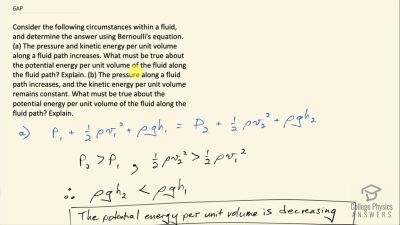 6AP
Consider the following circumstances within a fluid,
and determine the answer using Bernoulli's equation.
(a) The pressure and kinetic energy per unit volume
along a fluid path increases. What must be true about
the potential energy per unit volume of the fluid along
the fluid path? Explain. (b) The pressure along a fluid
path increases, and the kinetic energy per unit volume
remains constant. What must be true about the
potential energy per unit volume of the fluid along the
fluid path? Explain.
a) P₁ + ½ρv₁² + ρgh₁ = P₂ + ½ρv₂² + ρgh₂
P₂ > P₁ , ½ρv₂² > ½ρv₁²
∴ ρgh₂ < ρgh₁
The potential energy per unit volume is decreasing
College Physics
ANSWERS